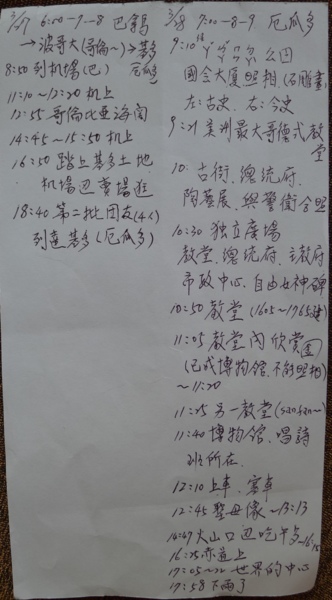 3/17 6:00-7-8 巴拿馬
→波哥大(哥倫~)→基多
厄瓜多
8:50 到机場(巴)
11:10~12:20 机上
13:55 哥倫比亞海関
14:45~15:50 机上
16:50 踏上基多土地
机場边賣場逛
18:40 第二批团友(4人)
到達基多(厄瓜多)
3/18 7:00-8-9 厄瓜多
9:10 公园
國会大厦照相(石雕畫)
左:古史、右:今史
9:21 美洲最大哥德式教堂
10: 古街、總統府、
陶藝展、與警衛合照
10:30 独立廣場
教堂、總統府、主教府
市政中心、自由女神碑
10:50 教堂 (1605~1765建)
11:05 教堂內欣賞画
(已成博物館、不能照相)
~11:20
11:25 另一教堂(san fran~)
11:40 博物館、唱詩
班所在、
12:10 上車、塞車
12:45 聖母像~13:13
火山口边吃午歺
16:25 赤道上
17:05~ 世界的中心
17:58 下雨了